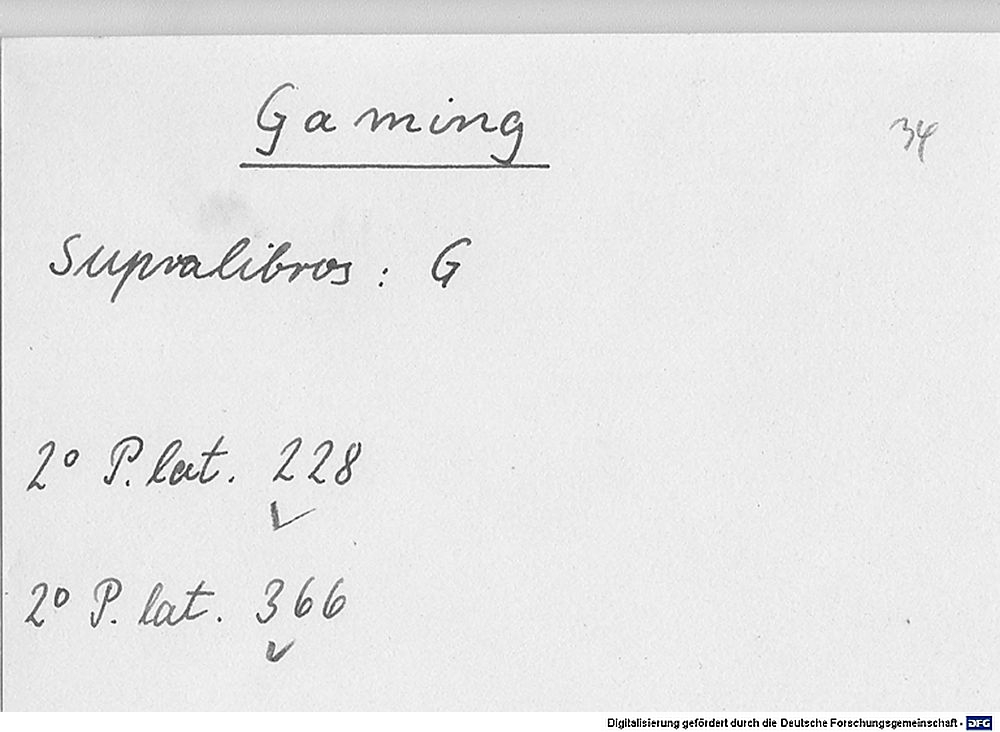 Gaming
34
Supralibros: G
2° P. lat. 228
2° P. lat. 366
Digitalisierung gefördert durch die Deutsche Forschungsgemeinschaft - DFG